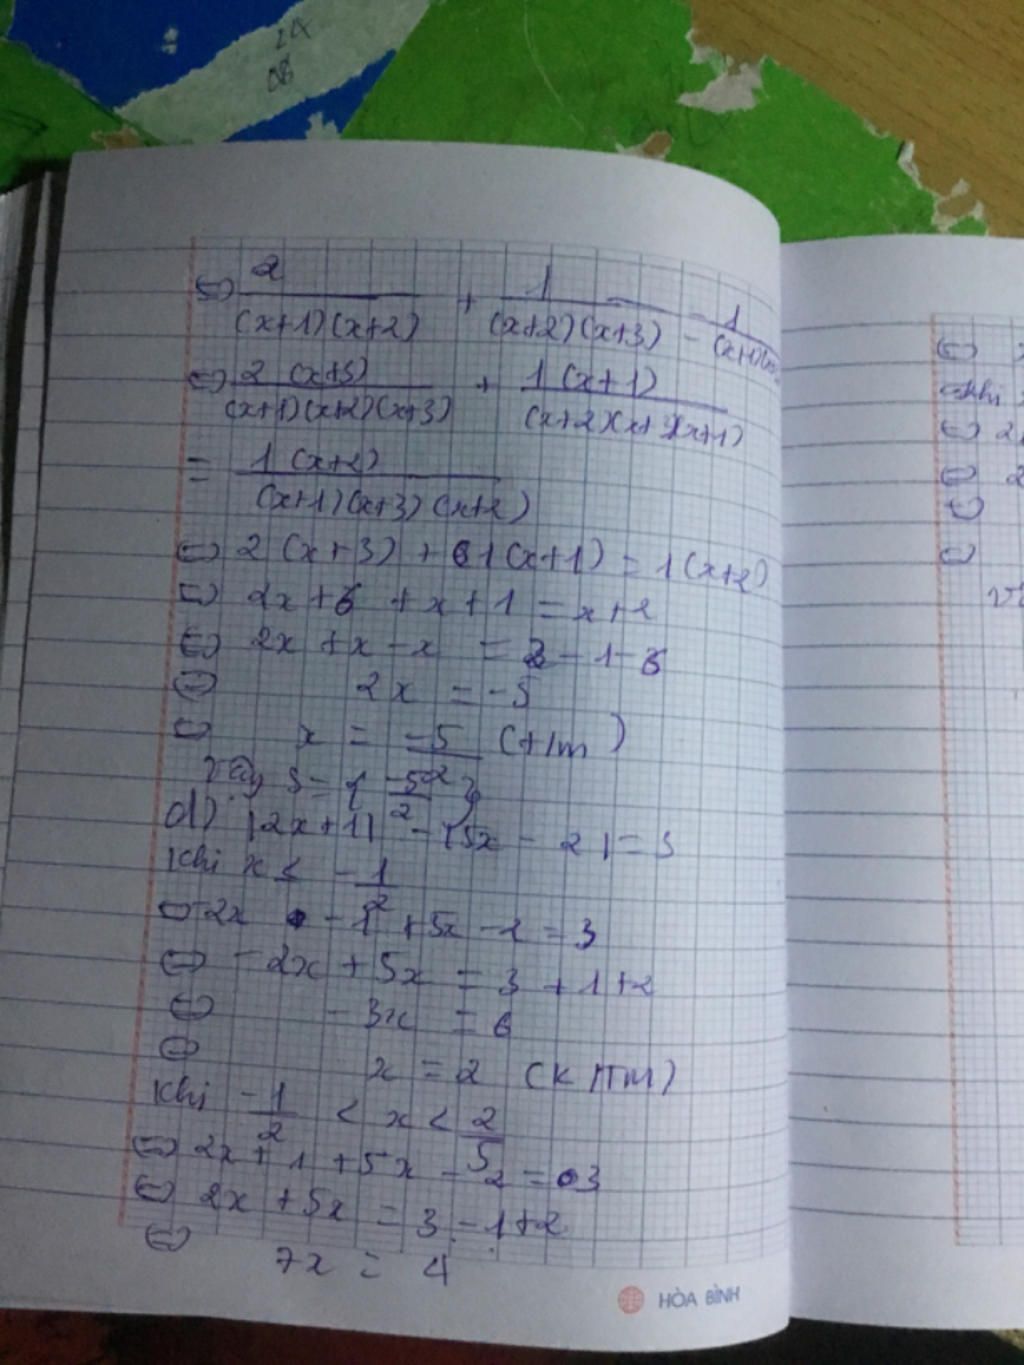 2A
08
⇔ 2/((x+1)(x+2)) + 1/((x+2)(x+3)) = 1/
⇔ 2(x+3)/((x+1)(x+2)(x+3)) + 1(x+1)/((x+2)(x+3)(x+1))
= 1(x+2)/((x+1)(x+3)(x+2))
⇔ 2(x+3) + 1(x+1) = 1(x+2)
⇔ 2x+6 + x+1 = x+2
⇔ 2x + x - x = 2 - 1 - 6
⇔ 2x = -5
⇔ x = -5/2 (t/m)
Vậy S = { -5/2 }
d) |2x+1| - |5x - 2| = 3
Khi x ≤ -1/2
⇔ -2x - 1 + 5x - 2 = 3
⇔ -2x + 5x = 3 + 1 + 2
⇔ -3x = 6
⇔ x = 2 (K/TM)
Khi -1/2 < x < 2/5
⇔ 2x + 1 + 5x - 2 = 3
⇔ 2x + 5x = 3 - 1 + 2
⇔ 7x = 4
HÒA BÌNH
⇔
khi
⇔ 2
⇔ 2
⇔
⇔